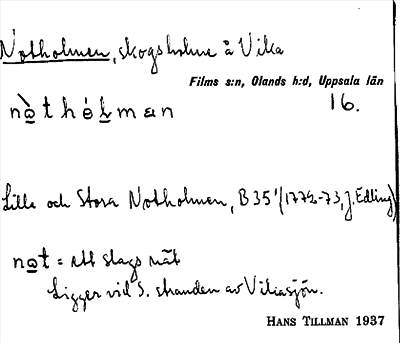 Notholmen, skogsholme å Vika
Films s:n, Olands h:d, Uppsala län
nò̲t hé l̲ m an 16.
Lilla och Stora Notholmen, B 35 1/(1772-73, J. Edling)
no̲t = ett slags nät
Ligger vid S. stranden av Vikasjön.
HANS TILLMAN 1937